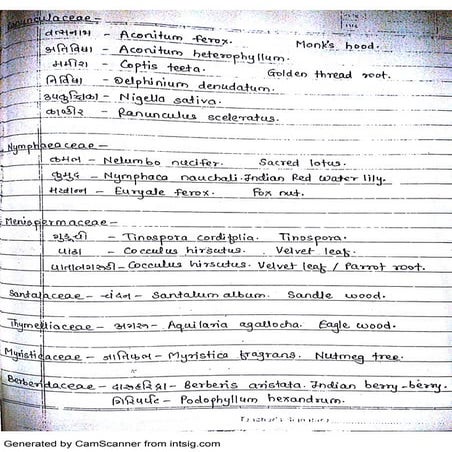 Ranunculaceae -
વત્સનાભ - Aconitum ferox. Monk's hood.
અતિવિષા - Aconitum heterophyllum.
મમીરા - Coptis teeta. Golden thread root.
નિર્વિષા - Delphinium denudatum.
ઉપકુંચિકા - Nigella sativa.
કાંડીર - Ranunculus sceleratus.
Nymphaeaceae -
કમળ - Nelumbo nucifer. Sacred lotus.
કુમુદ - Nymphaea nauchali. Indian Red water lily.
મખાન્ન - Euryale ferox. Fox nut.
Menispermaceae -
ગુડૂચી - Tinospora cordifolia. Tinospora.
પાઠા - Cocculus hirsutus. Velvet leaf.
પાતાલગરુડી - Cocculus hirsutus. Velvet leaf / Parrot root.
Santalaceae - ચંદન - Santalum album. Sandle wood.
Thymeliaceae - અગરુ - Aquilaria agallocha. Eagle wood.
Myristicaceae - જાતિફળ - Myristica fragrans. Nutmeg tree.
Berberidaceae - દારુહરિદ્રા - Berberis aristata. Indian berry-berry.
- Podophyllum hexandrum.
Generated by CamScanner from intsig.com